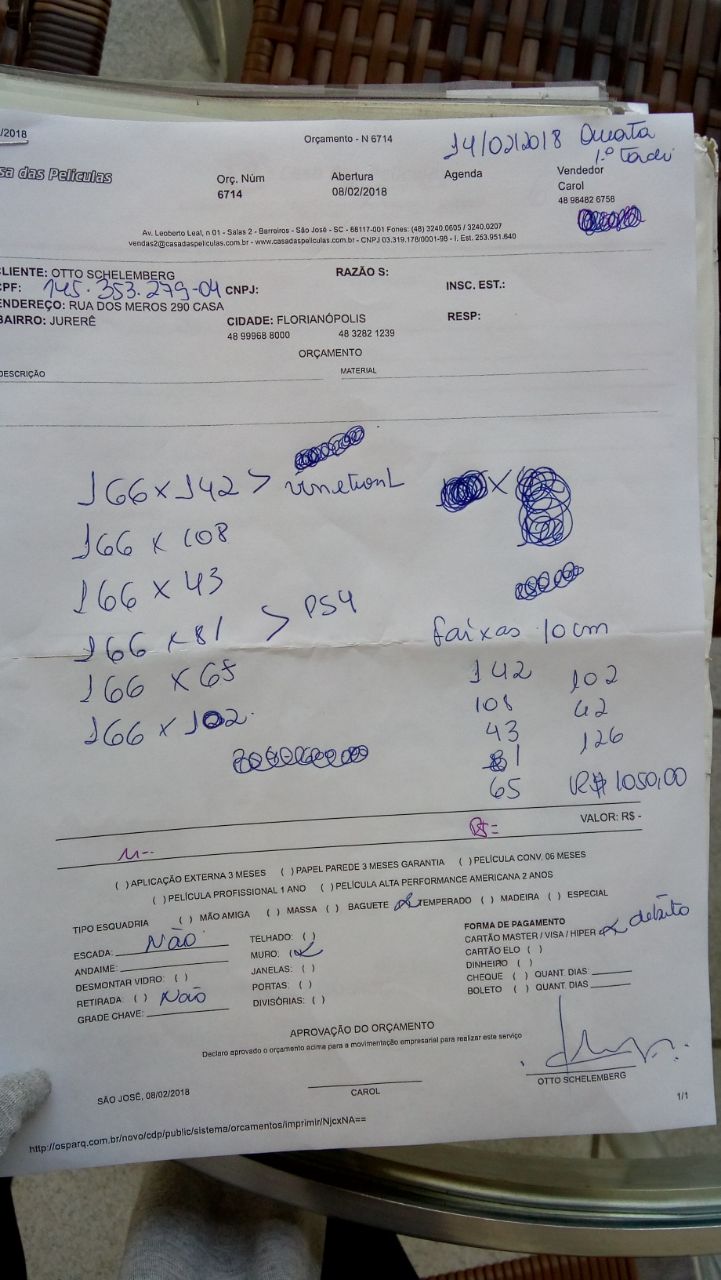 /2018
Orçamento - N 6714
14/02/2018 Quarta
1.º
sa das Películas
Orç. Núm
6714
Abertura
08/02/2018
Agenda
Vendedor
Carol
48 98482 6758
Av. Leoberto Leal, n 01 - Salas 2 - Barreiros - São José - SC - 88117-001 Fones: (48) 3240.0605 / 3240.0207
vendas2@casadaspeliculas.com.br - www.casadaspeliculas.com.br - CNPJ 03.319.178/0001-98 - I. Est. 253.951.640
CLIENTE: OTTO SCHELEMBERG
RAZÃO S:
CPF: 145.353.279-04 CNPJ:
INSC. EST.:
ENDEREÇO: RUA DOS MEROS 290 CASA
BAIRRO: JURERÊ
CIDADE: FLORIANÓPOLIS
RESP:
48 99968 8000
48 3282 1239
ORÇAMENTO
DESCRIÇÃO
MATERIAL
166 x 142 >
166 x 108
166 x 43
166 x 81 > PS4
166 x 65
166 x 102
faixas 10cm
142 102
108 42
43 126
81
65 R$ 1050,00
VALOR: R$ -
( ) APLICAÇÃO EXTERNA 3 MESES ( ) PAPEL PAREDE 3 MESES GARANTIA ( ) PELÍCULA CONV. 06 MESES
( ) PELÍCULA PROFISSIONAL 1 ANO ( ) PELÍCULA ALTA PERFORMANCE AMERICANA 2 ANOS
TIPO ESQUADRIA ( ) MÃO AMIGA ( ) MASSA ( ) BAGUETE (x) TEMPERADO ( ) MADEIRA ( ) ESPECIAL
ESCADA: Não
ANDAIME:
DESMONTAR VIDRO: ( )
RETIRADA: ( ) Não
GRADE CHAVE:
TELHADO: ( )
MURO: (x)
JANELAS: ( )
PORTAS: ( )
DIVISÓRIAS: ( )
FORMA DE PAGAMENTO
CARTÃO MASTER / VISA / HIPER (x) debito
CARTÃO ELO ( )
DINHEIRO ( )
CHEQUE ( ) QUANT. DIAS
BOLETO ( ) QUANT. DIAS
APROVAÇÃO DO ORÇAMENTO
Declaro aprovado o orçamento acima para a movimentação empresarial para realizar este serviço
SÃO JOSÉ, 08/02/2018
CAROL
OTTO SCHELEMBERG
1/1
http://osparq.com.br/novo/cdp/public/sistema/orcamentos/imprimir/NjcxNA==